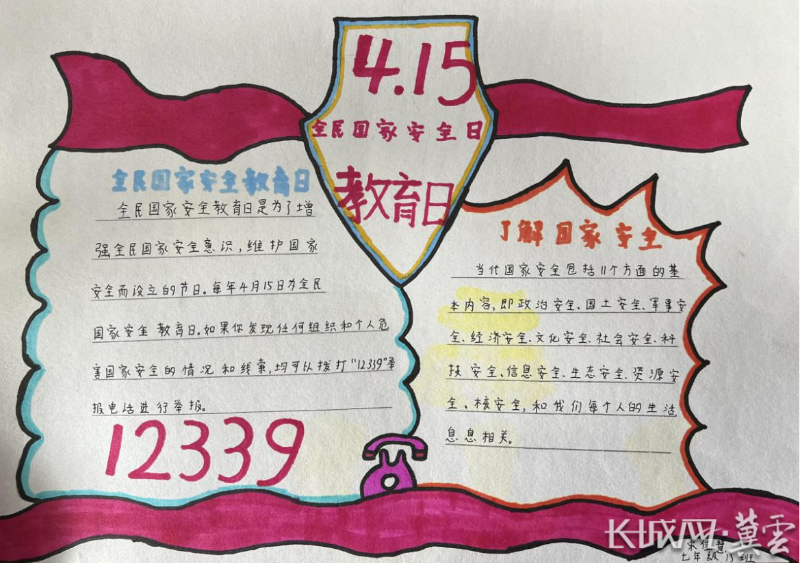 4.15
全民国家安全日
教育日
全民国家安全教育日
全民国家安全教育日是为了增
强全民国家安全意识,维护国家
安全而设立的节日。每年4月15日为全民
国家安全教育日。如果你发现任何组织和个人危
害国家安全的情况和线索,均可以拨打"12339"举
报电话进行举报。
12339
了解国家安全
当代国家安全包括11个方面的基
本内容,即政治安全、国土安全、军事安
全、经济安全、文化安全、社会安全、科
技安全、信息安全、生态安全、资源安
全、核安全,和我们每个人的生活
息息相关。
长城网·冀雲
七年级13班